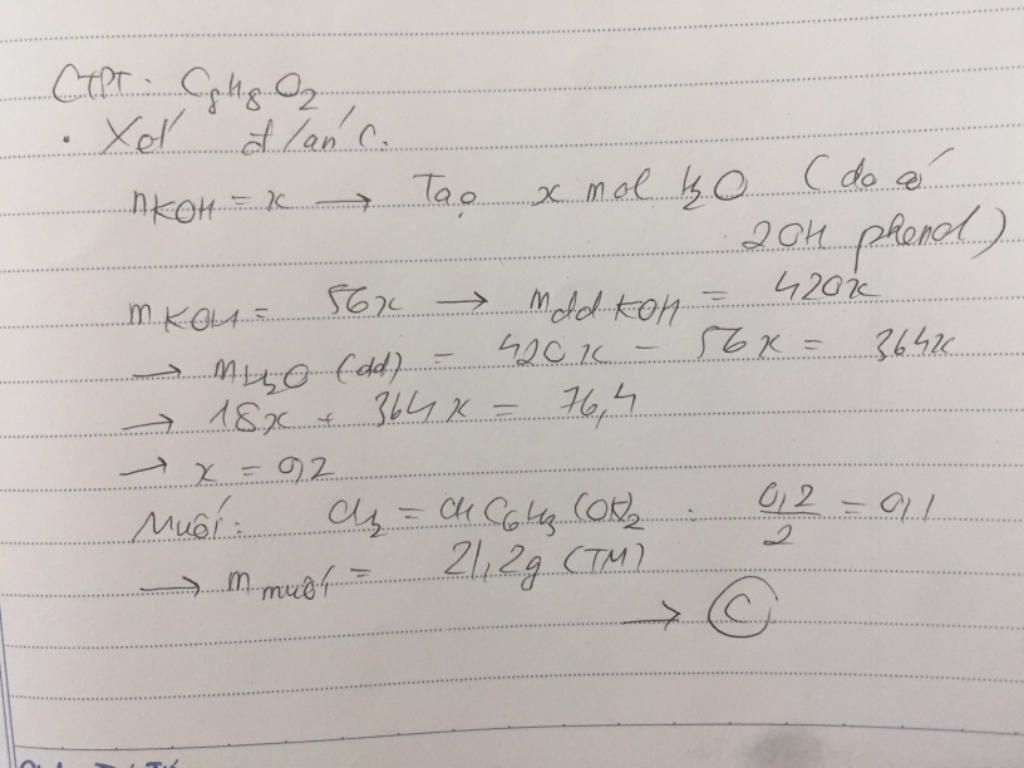 CTPT: C₈H₈O₂
• Xét đ/án C.
nKOH = x → Tạo x mol H₂O (do có
2OH phenol)
mKOH = 56x → mdd KOH = 420x
→ mH₂O (dd) = 420x - 56x = 364x
→ 18x + 364x = 76,4
→ x = 0,2
Muối: CH₂=CHC₆H₃(OK)₂ : 0,2/2 = 0,1
→ m muối = 21,2g (TM)
→ C